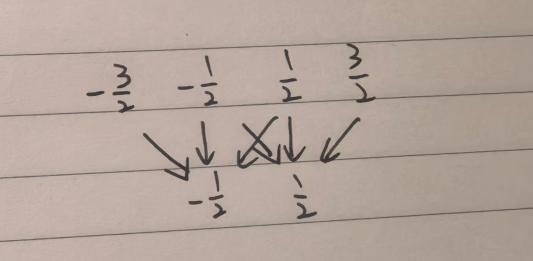 -3/2 -1/2 1/2 3/2
-1/2 1/2